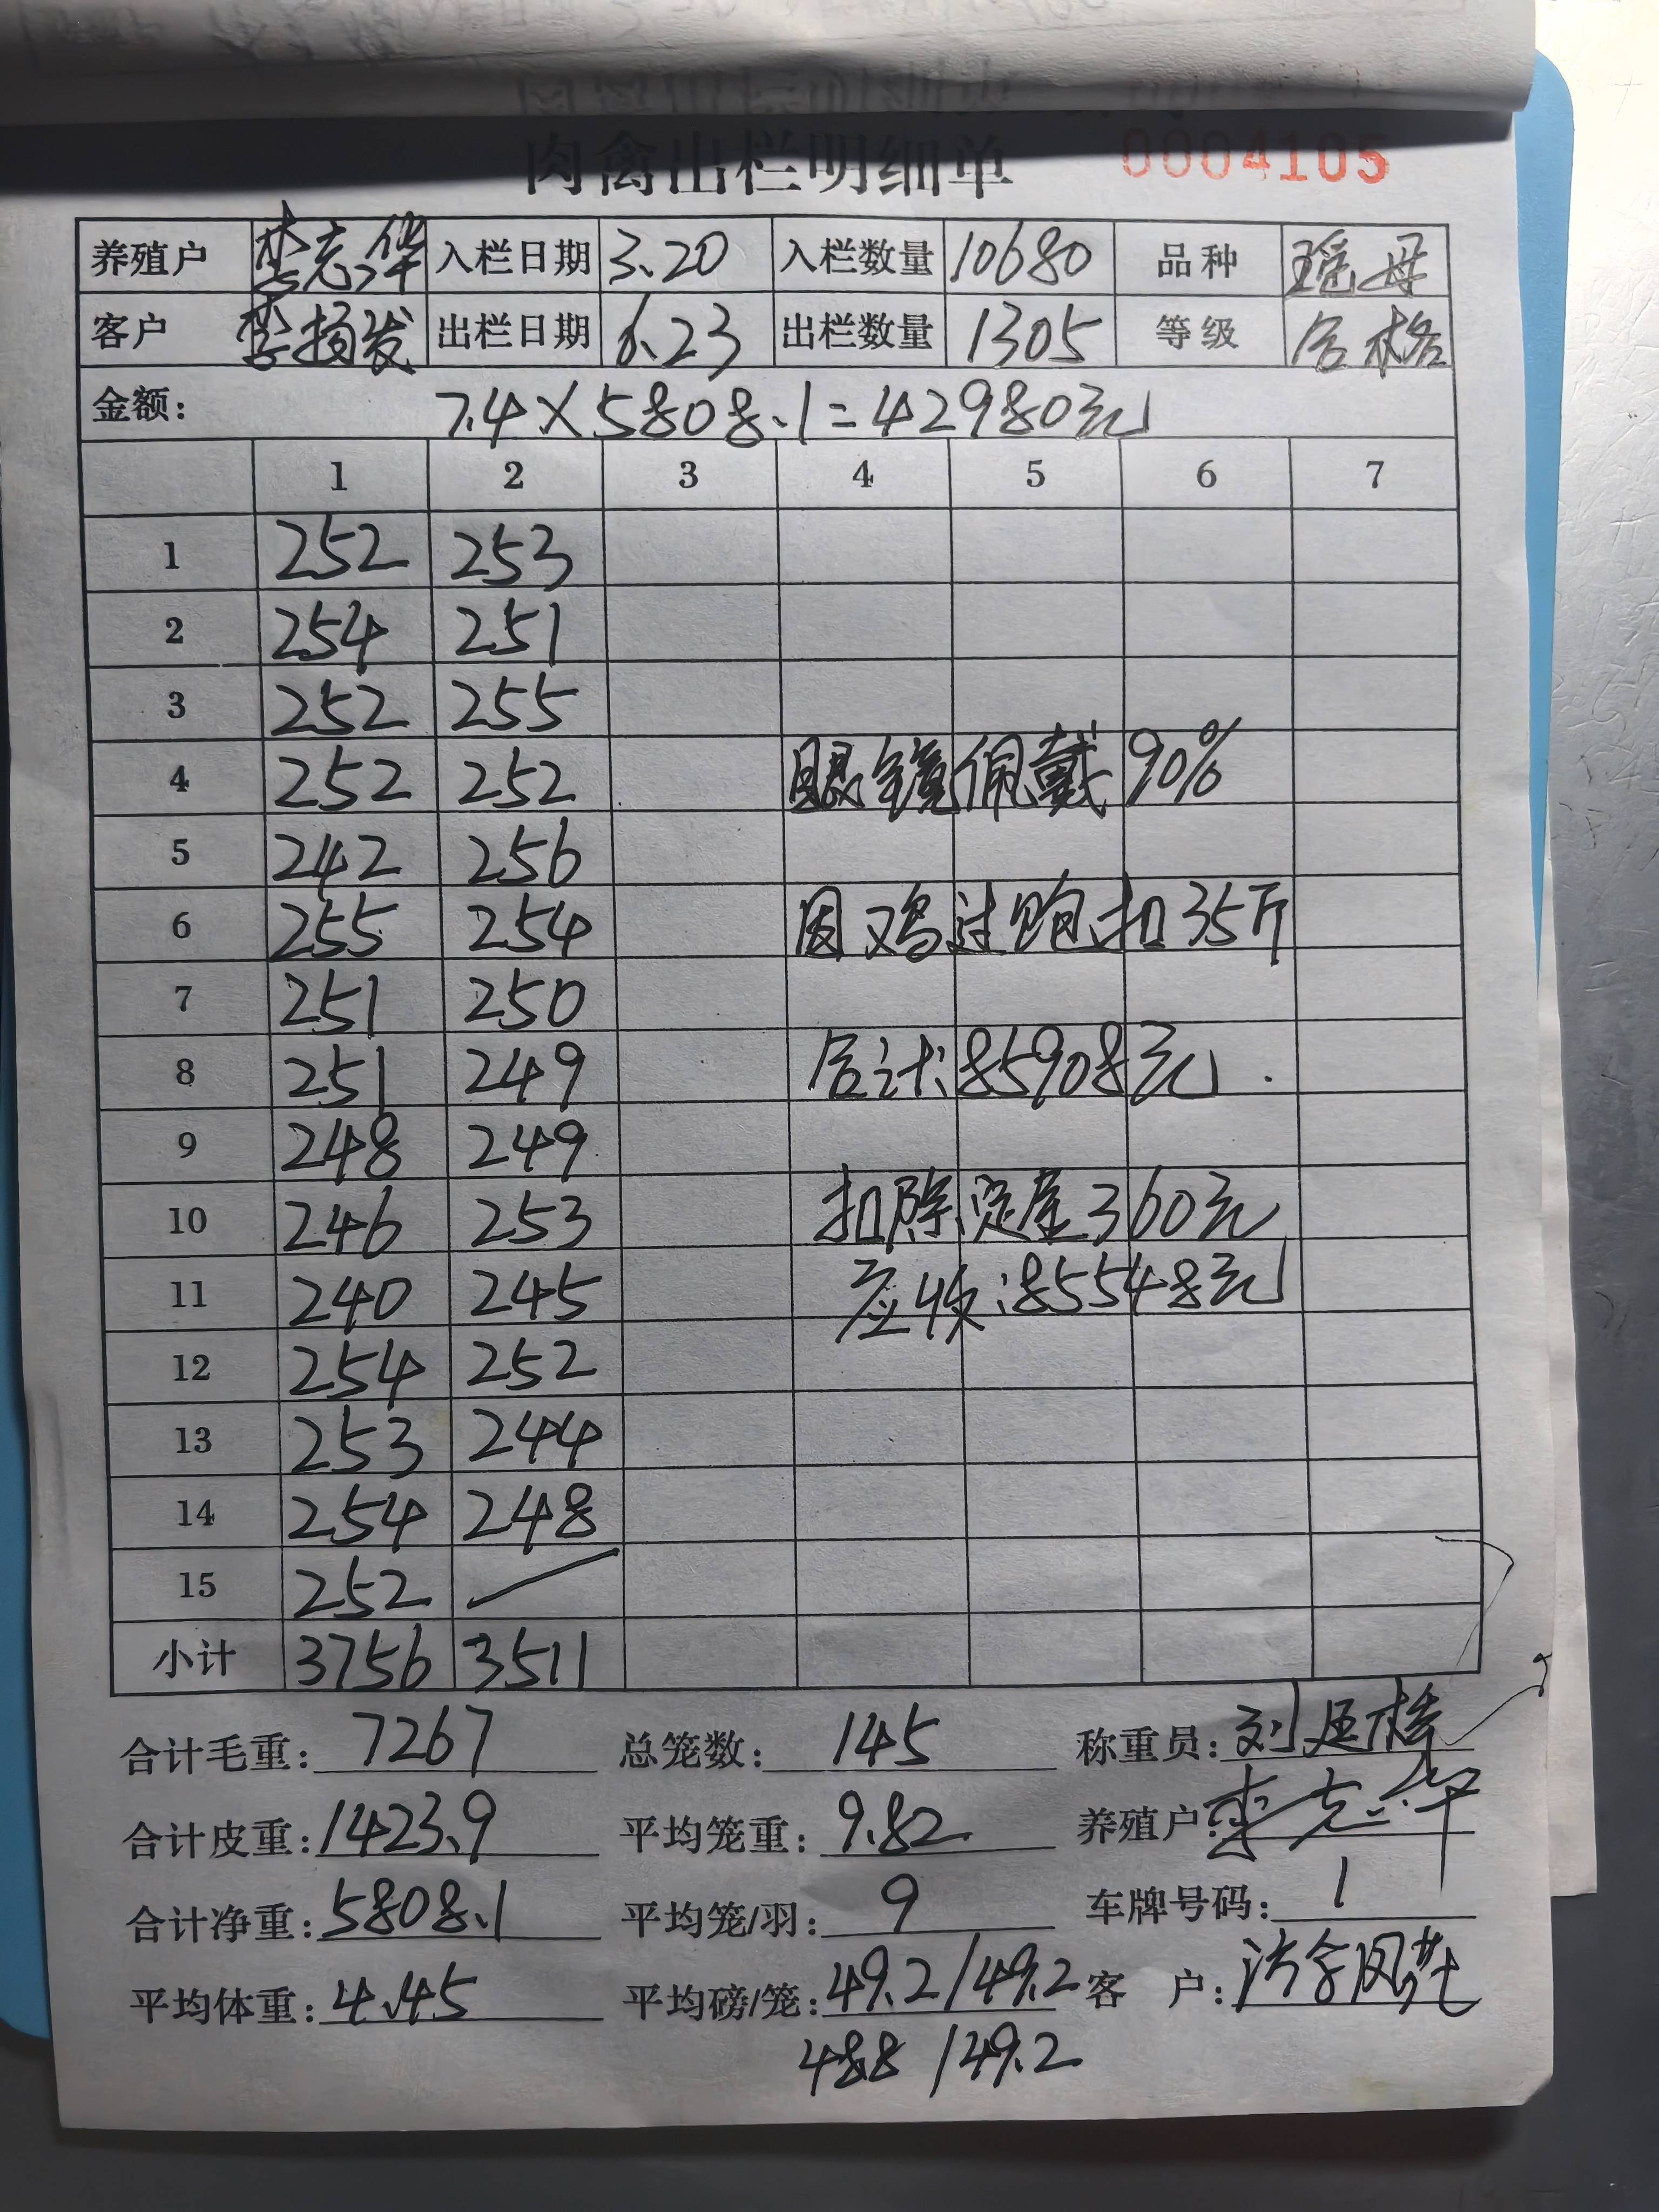 肉禽出栏明细单 0004105
养殖户 李志华 入栏日期 3.20 入栏数量 10680 品种 瑶母
客户 李扬发 出栏日期 6.23 出栏数量 1305 等级 合格
金额: 7.4×5808.1=42980元
1 2 3 4 5 6 7
1 252 253
2 254 251
3 252 255
4 252 252 眼镜佩戴90%
5 242 256
6 255 254 因鸡过饱扣35斤
7 251 250
8 251 249 合计:85908元.
9 248 249
10 246 253 扣除定金360元
11 240 245 应收:85548元
12 254 252
13 253 244
14 254 248
15 252
小计 3756 3511
合计毛重: 7267 总笼数: 145 称重员: 刘
合计皮重: 1423.9 平均笼重: 9.82 养殖户: 李志华
合计净重: 5808.1 平均笼/羽: 9 车牌号码: 1
平均体重: 4.45 平均磅/笼: 49.2/49.2 客 户:
48.8/49.2